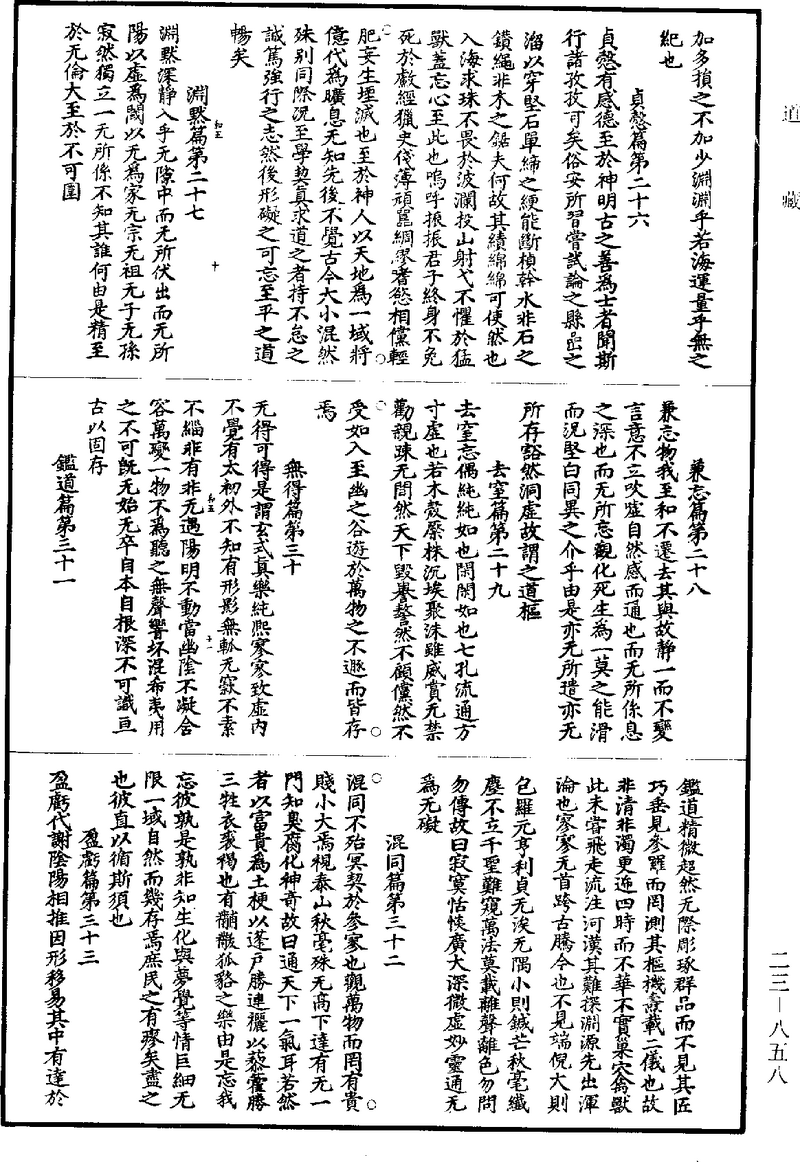 道藏
加多損之不加少淵淵乎若海運量乎無之
紀也
貞慤篇第二十六
貞慤有感德至於神明古之善為士者聞斯
行諸孜孜可矣俗安所習嘗試論之縣嵒之
溜以穿堅石單締之綆能斷楨幹水非石之
鑽繩非木之鋸夫何故其績綿綿可使然也
入海求珠不畏於波瀾投山射弋不懼於猛
獸蓋忘心至此也嗚呼振振君子終身不免
死於戲經獵史俴薄頑嚚綢繆嗜慾相儻輕
肥妄生堙滅也至於神人以天地為一域將
億代為曠息无知先後不覺古今大小混然
殊別同際況至學契真求道之者持不怠之
誠篤強行之志然後形礙之可忘至平之道
暢矣
淵默篇第二十七
淵默深靜入乎无陰中而无所伏出而无所
陽以虛為閾以无為家无宗无祖无子无孫
寂然獨立一无所係不知其誰何由是精至
於无倫大至於不可圍
兼忘篇第二十八
兼忘物我至和不遷去其與故靜一而不變
言意不立吹噓自然感而通也而无所係息
之深也而无所忘觀化死生為一莫之能滑
而況堅白同異之介乎由是亦无所遣亦无
所存豁然洞虛故謂之道樞
去窒篇第二十九
去窒忘偶純純如也閑閑如也七孔流通方
寸虛也若木殼槩株沉埃聚沫雖威賞无禁
勸親踈无間然天下毀譽謷然不顧儻然不
受如入至幽之谷遊於萬物之不遯而皆存
焉
無得篇第三十
无得可得是謂玄式真樂純熙寥寥致虛内
不覺有太初外不知有形影無軱无窾不素
不緇非有非无遇陽明不動當幽陰不凝含
容萬變一物不為聽之無聲響坏混希夷用
之不可既无始无卒自本自根深不可識亘
古以固存
鑑道篇第三十一
鑑道精微超然无際彫琢群品而不見其匠
巧垂見參羅而罔測其樞機燾載二儀也故
非清非濁更迎四時而不華不實巢穴禽獸
此未嘗飛走流注河漢其難探淵源先出渾
淪也寥寥无首跨古騰今也不見端倪大則
包羅元亨利貞无涘无隅小則鍼芒秋毫纖
塵不立千聖難窺萬法莫載離聲離色勿問
勿傳故曰寂寞恬惔廣大深微虛妙靈通无
為无礙
混同篇第三十二
混同不殆冥契於參寥也觀萬物而罔有貴
賤小大焉視泰山秋毫殊无高下達有无一
門知臭腐化神奇故曰通天下一氣耳若然
者以富貴為土梗以蓬戶勝連欐以藜藿勝
三牲衣裘褐也有黼黻狐貉之樂由是忘我
忘彼孰是孰非知生化與夢覺等情巨細无
限一域自然而幾存焉庶民之有瘳矣盡之
也彼直以循斯須也
盈虧篇第三十三
盈虧代謝陰陽相推因形移易其中有達於
二三—八五八